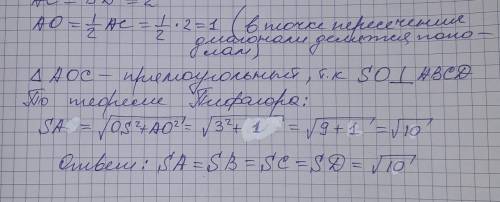 AC = BD = 2
AO = 1/2 AC = 1/2 · 2 = 1 (в точке пересечения
диагонали делятся попо-
лам)
Δ AOC – прямоугольный, т.к SO ⊥ ABCD
По теореме Пифагора:
SA = √OS²+AO² = √3²+1 = √9+1 = √10
Ответ: SA = SB = SC = SD = √10